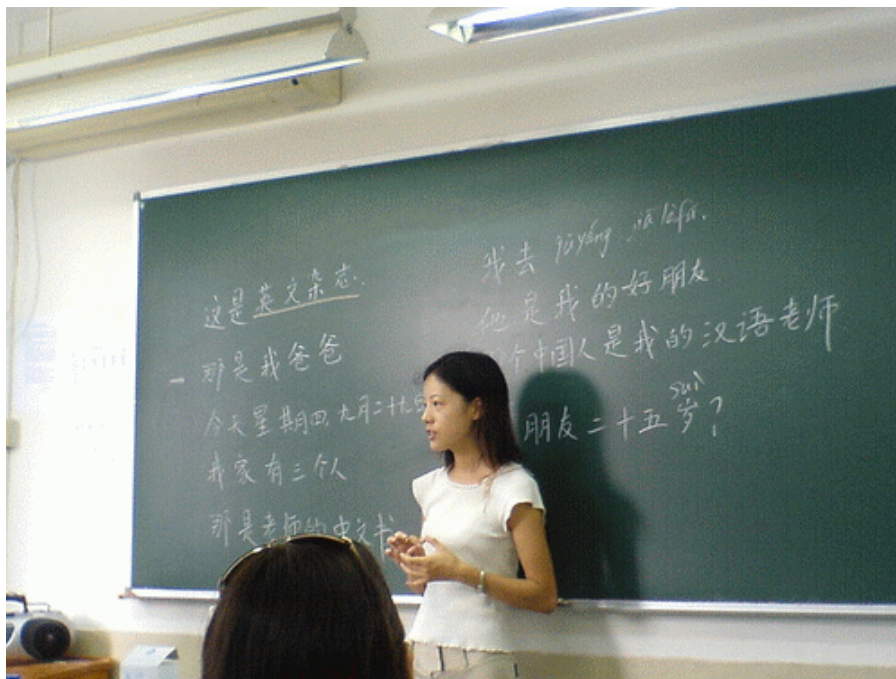 这是英文杂志.
那是我爸爸
今天星期四,九月二十九
我家有三个人
那是老师的中文书
我去
他是我的好朋友
个中国人是我的汉语老师
suì
朋友二十五岁?